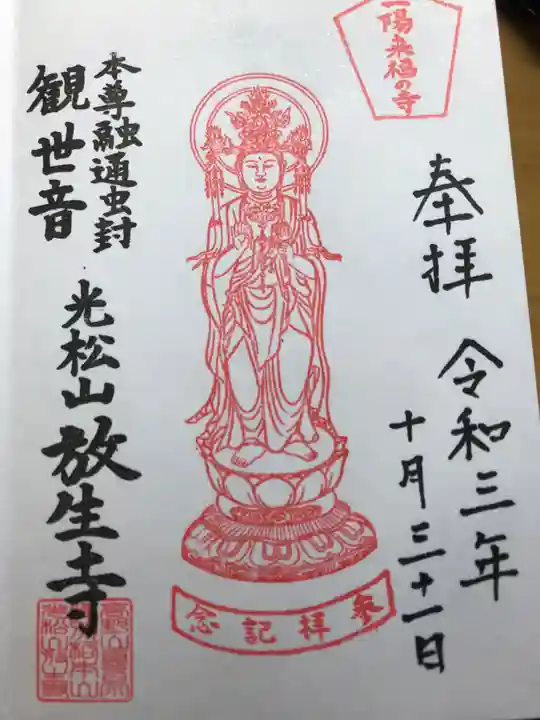 一陽来福の寺
奉拝
令和三年
十月三十一日
参拝記念
本尊融通虫封
観世音
光松山放生寺